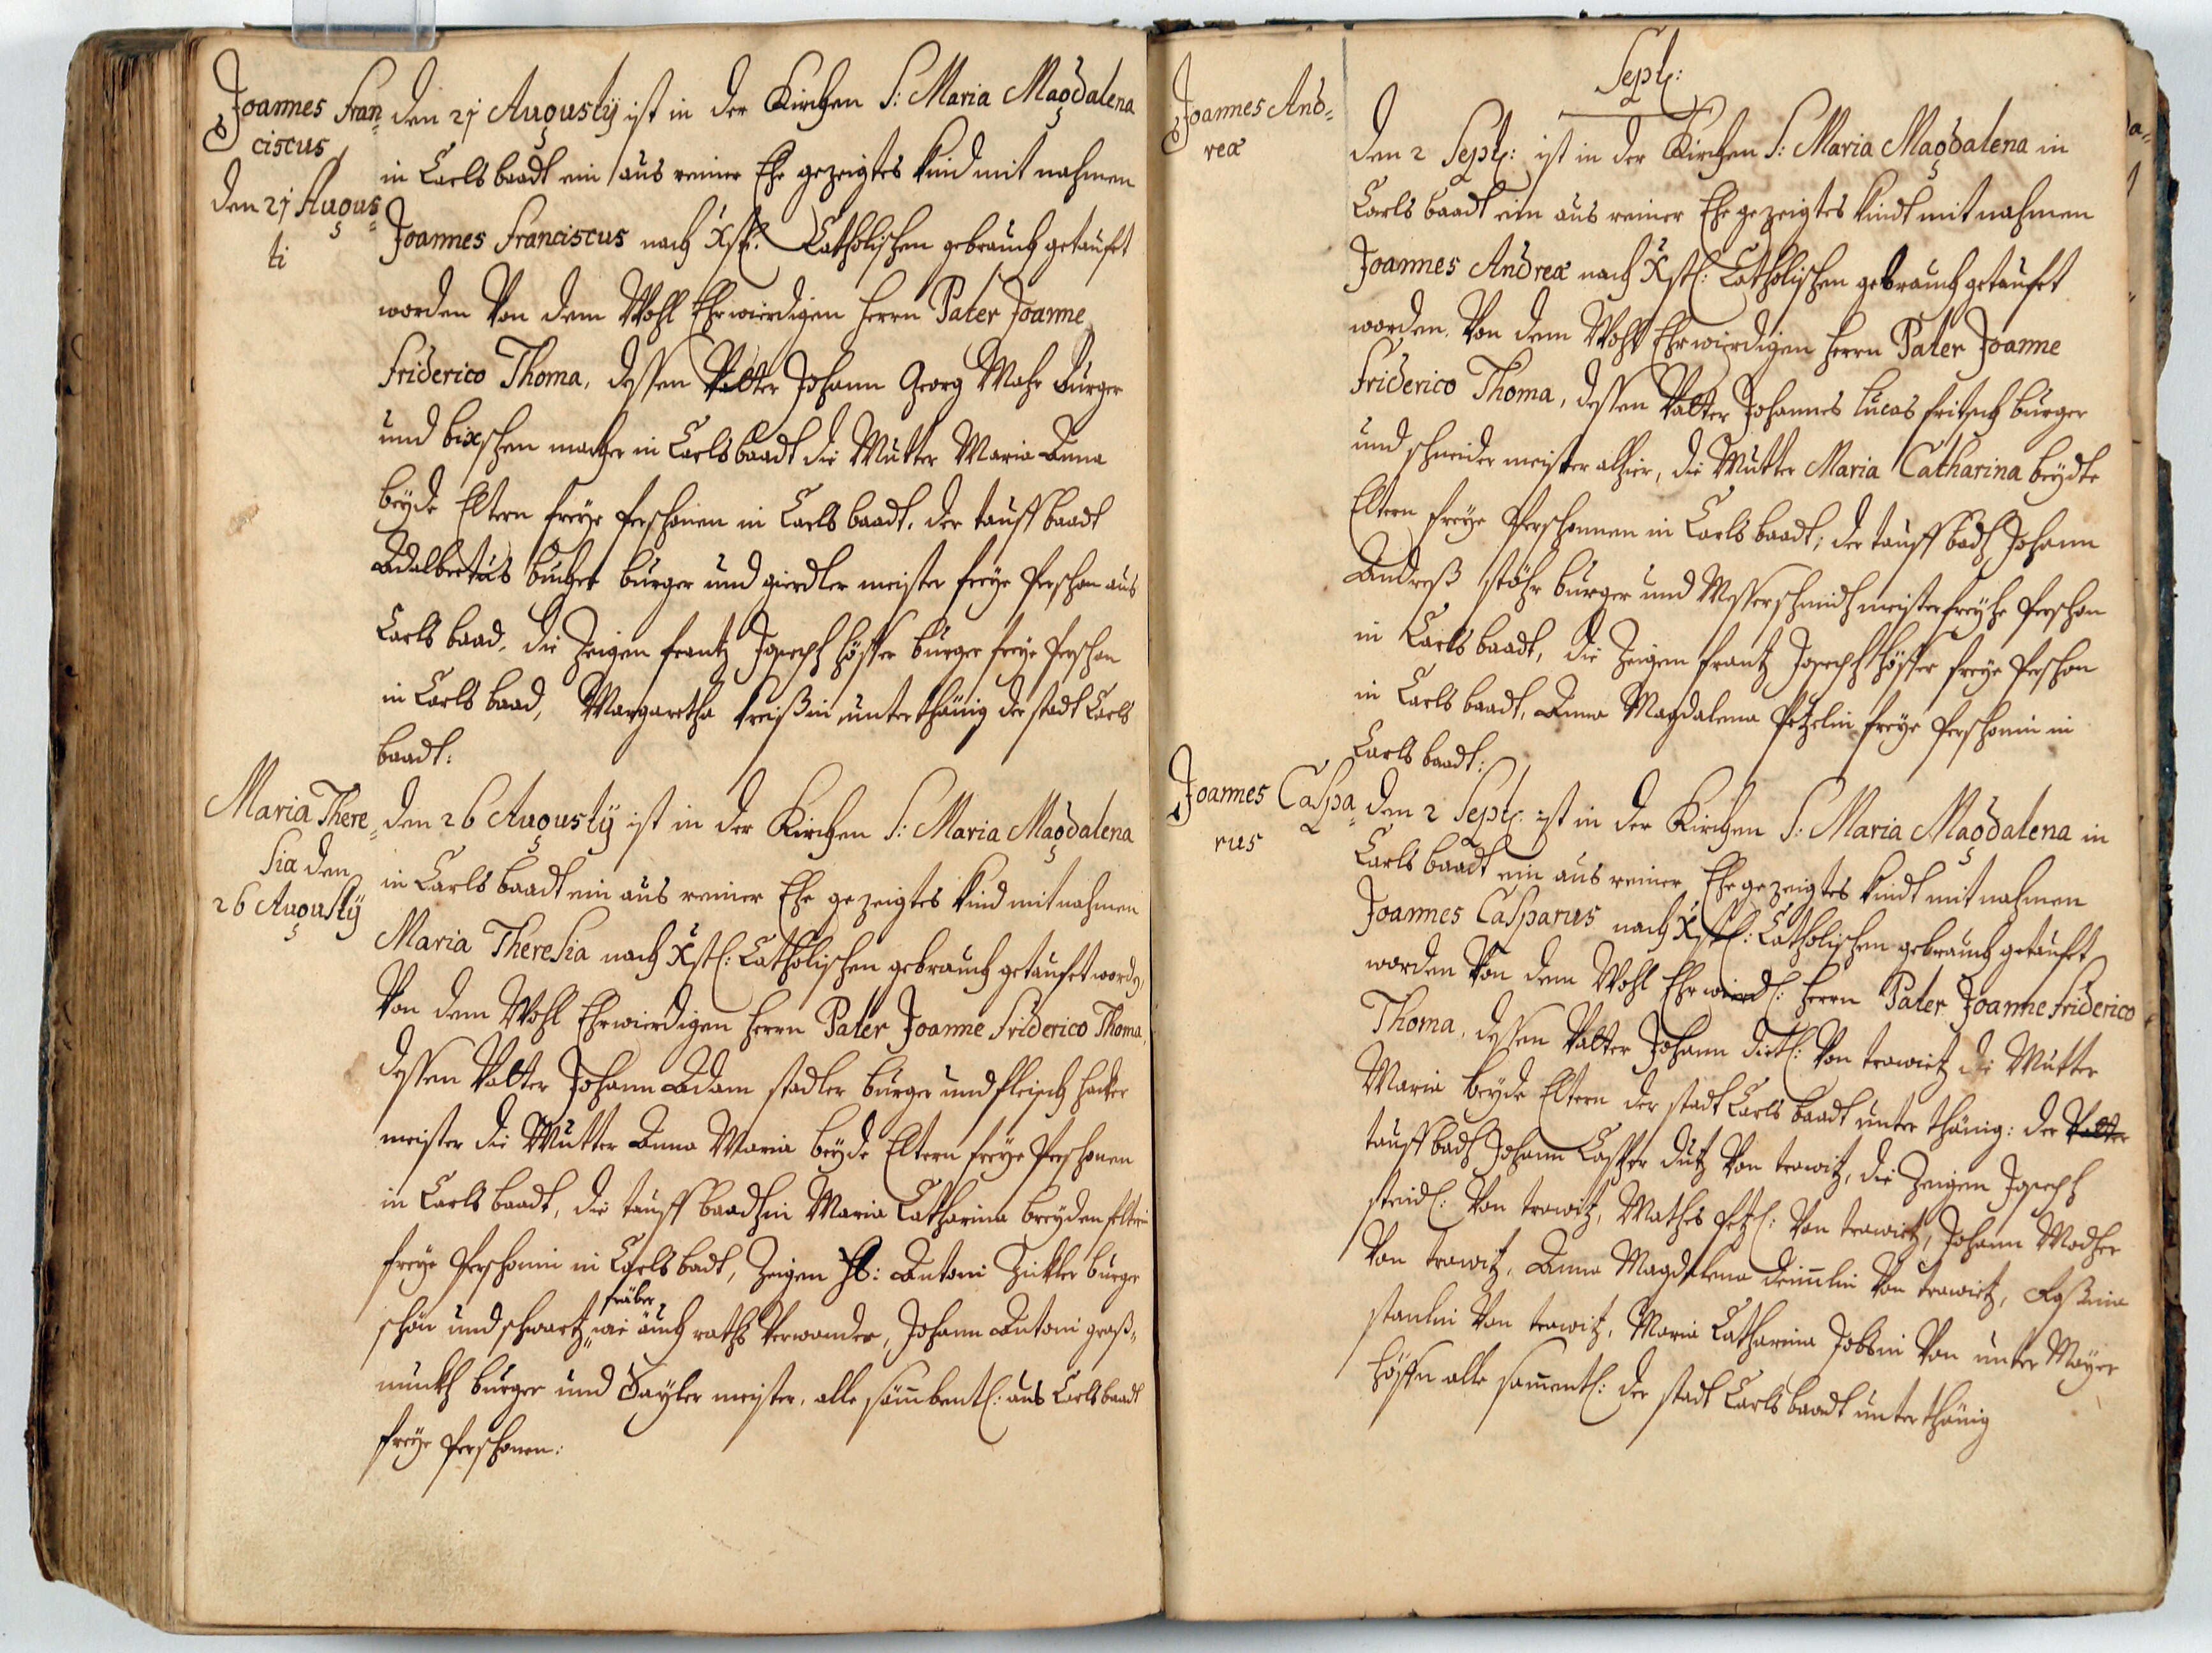 Joannes Fran=
ciscus
den 21 Augus=
ti
den 21 Augusty ist in der Kirchen S: Maria Magdalena
in Carlsbaadt ein aus reiner Ehe gezeigtes Kind mit nahmen
Joannes Franciscus nach Xstl: Catholischen gebrauch getaufet
worden Von dem Wohl Ehrwierdigen Herrn Pater Joanne
Friderico Thoma, dessen Vatter Johann Georg Mahr Burger
und bixschen macher in Carlsbaadt die Mutter Maria Anna
beyde Eltern freye Perschonen in Carlsbaadt. der tauff baadt
Adalbertus bucher burger und gierdler meister freye Perschon aus
Carlsbaad. die Zeigen Frantz Joseph Höffer burger freye Perschon
in Carlsbaad, Margaretha unterthänig der stadt Carls
baadt:
Maria There=
sia den
26 Augusty
den 26 Augusty ist in der Kirchen S: Maria Magdalena
in Carlsbaadt ein aus reiner Ehe gezeigtes Kind mit nahmen
Maria Theresia nach Xstl: Catholischen gebrauch getaufet word
Von dem Wohl Ehrwierdigen Herrn Pater Joanne Friderico Thoma,
dessen Vatter Johann Adam stadler burger und fleisch hacker
meister die Mutter Anna Maria beyde Eltern freye Perschonen
in Carlsbaadt, die tauff baadtin Maria Catharina
freye Perschonin in Carlsbadt, Zeigen H: Antoni Zickler burger
schön und schwartz färber wie auch raths Verwander, Johann Antoni graß=
munth burger und Sayler meister, alle sämbentl: aus Carlsbaadt
freye Perschonen:
Sept:
Joannes And=
reæ
den 2 Sept: ist in der Kirchen S: Maria Magdalena in
Carlsbaadt ein aus reiner Ehe gezeigtes Kindt mit nahmen
Joannes Andreæ nach Xstl: Catholischen gebrauch getaufet
worden. Von dem Wohl Ehrwierdigen Herrn Pater Joanne
Friderico Thoma, dessen Vatter Johannes Lucas Fritsch burger
und schneider meister alhier, die Mutter Maria Catharina beydte
Eltern freye Perschonnen in Carlsbaadt; der tauff badh Johann
Andreß stöhr burger und Messerschmidt meister freyhe Perschon
in Carlsbaadt, die Zeigen Frantz Joseph Höffer freye Perschon
in Carlsbaadt, Anna Magdalena Petzelin freye Perschonin in
Carlsbaadt:
Joannes Caspa=
rus
den 2 Sept: ist in der Kirchen S: Maria Magdalena in
Carlsbaadt ein aus reiner Ehe gezeigtes Kindt mit nahmen
Joannes Casparus nach Xstl: Catholischen gebrauch getaufet
worden Von dem Wohl Ehrwierd: Herrn Pater Joanne Friderico
Thoma, dessen Vatter Johann dietl: Von trawietz die Mutter
Maria beyde Eltern der stadt Carlsbaadt unterthänig: der Vatter
tauff badh Johann Casper dutz Von trawitz, die Zeigen Joseph
steidl: Von trawitz, Mathes Petzl: Von trawietz, Johann Modher
Von trawitz, Anna Magdalena Von trawietz, Rosina
Von trawitz, Maria Catharina Jobstin Von unter Mayer
Höffen alle samentl: der stadt Carlsbaadt unterthänig